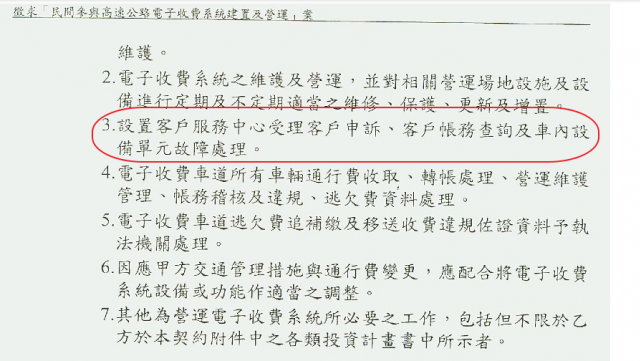 徵求「民間參與高速公路電子收費系統建置及營運」案
維護。
2.電子收費系統之維護及營運，並對相關營運場地設施及設
備進行定期及不定期適當之維修、保護、更新及增置。
3.設置客戶服務中心受理客戶申訴、客戶帳務查詢及車內設
備單元故障處理。
4.電子收費車道所有車輛通行費收取、轉帳處理、營運維護
管理、帳務稽核及違規、逃欠費資料處理。
5.電子收費車道逃欠費追補繳及移送收費違規佐證資料予執
法機關處理。
6.因應甲方交通管理措施與通行費變更，應配合將電子收費
系統設備或功能作適當之調整。
7.其他為營運電子收費系統所必要之工作，包括但不限於乙
方於本契約附件中之各類投資計畫書中所示者。